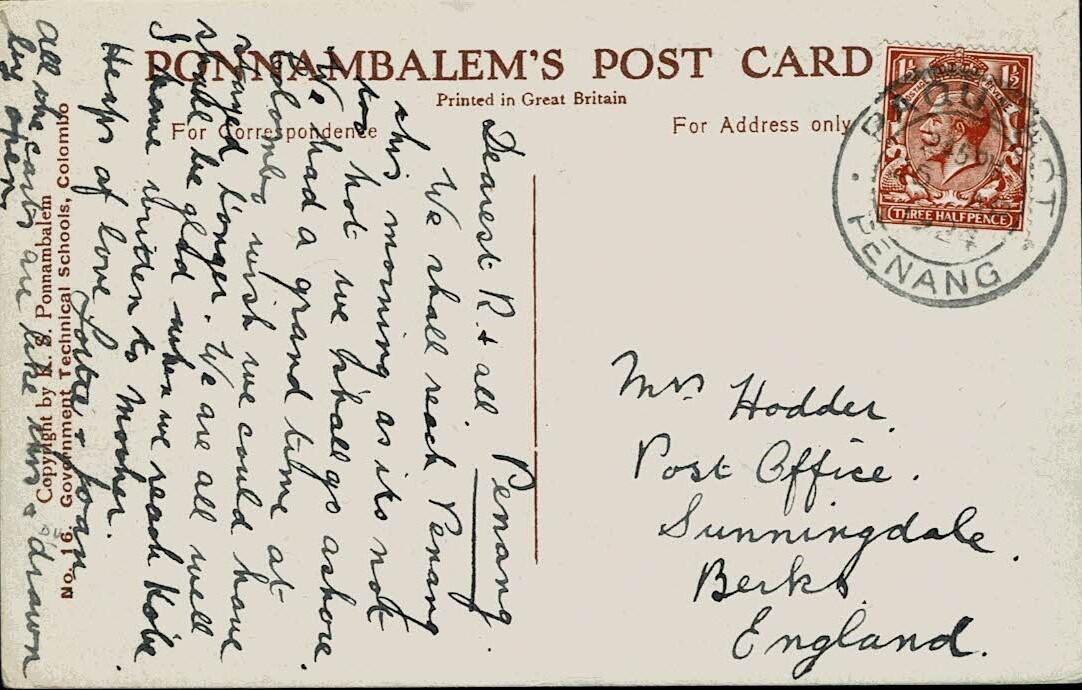 PONNAMBALEM'S POST CARD
Printed in Great Britain
For Correspondence
For Address only
1½ 1½
THREE HALFPENCE
PAQUEBOT
PENANG
Penang
Dearest R. & all.
We shall reach Penang
this morning as its not
too hot we shall go ashore.
We had a grand time at
Colombo wish we could have
stayed longer. We are all well
shall be glad when we reach Kobe
I have written to Mother.
Heaps of love Lottie & Joan
all the carts are like this & drawn
by oxen
Copyright by K. S. Ponnambalem
No. 16. Government Technical Schools, Colombo
Mrs Hodder
Post Office.
Sunningdale.
Berks.
England.